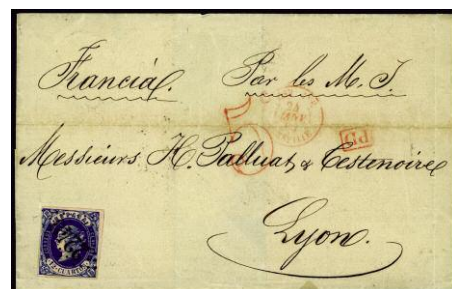 Francia
Par les M. I.
PD
Messieurs H. Palluat & Testenoire
Lyon.
12 CUARTOS